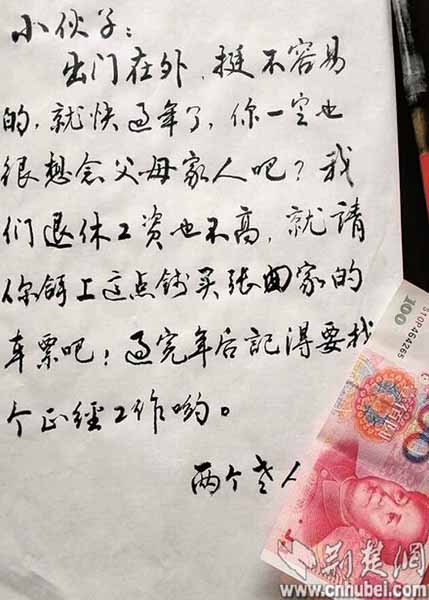 小伙子：
出门在外，挺不容易
的，就快过年了，你一定也
很想念父母家人吧？我
们退休工资也不高，就請
你拿上这点钱买张回家的
车票吧！过完年后記得要找
个正經工作哟。
两个老人
100
荆楚網
www.cnhubei.com